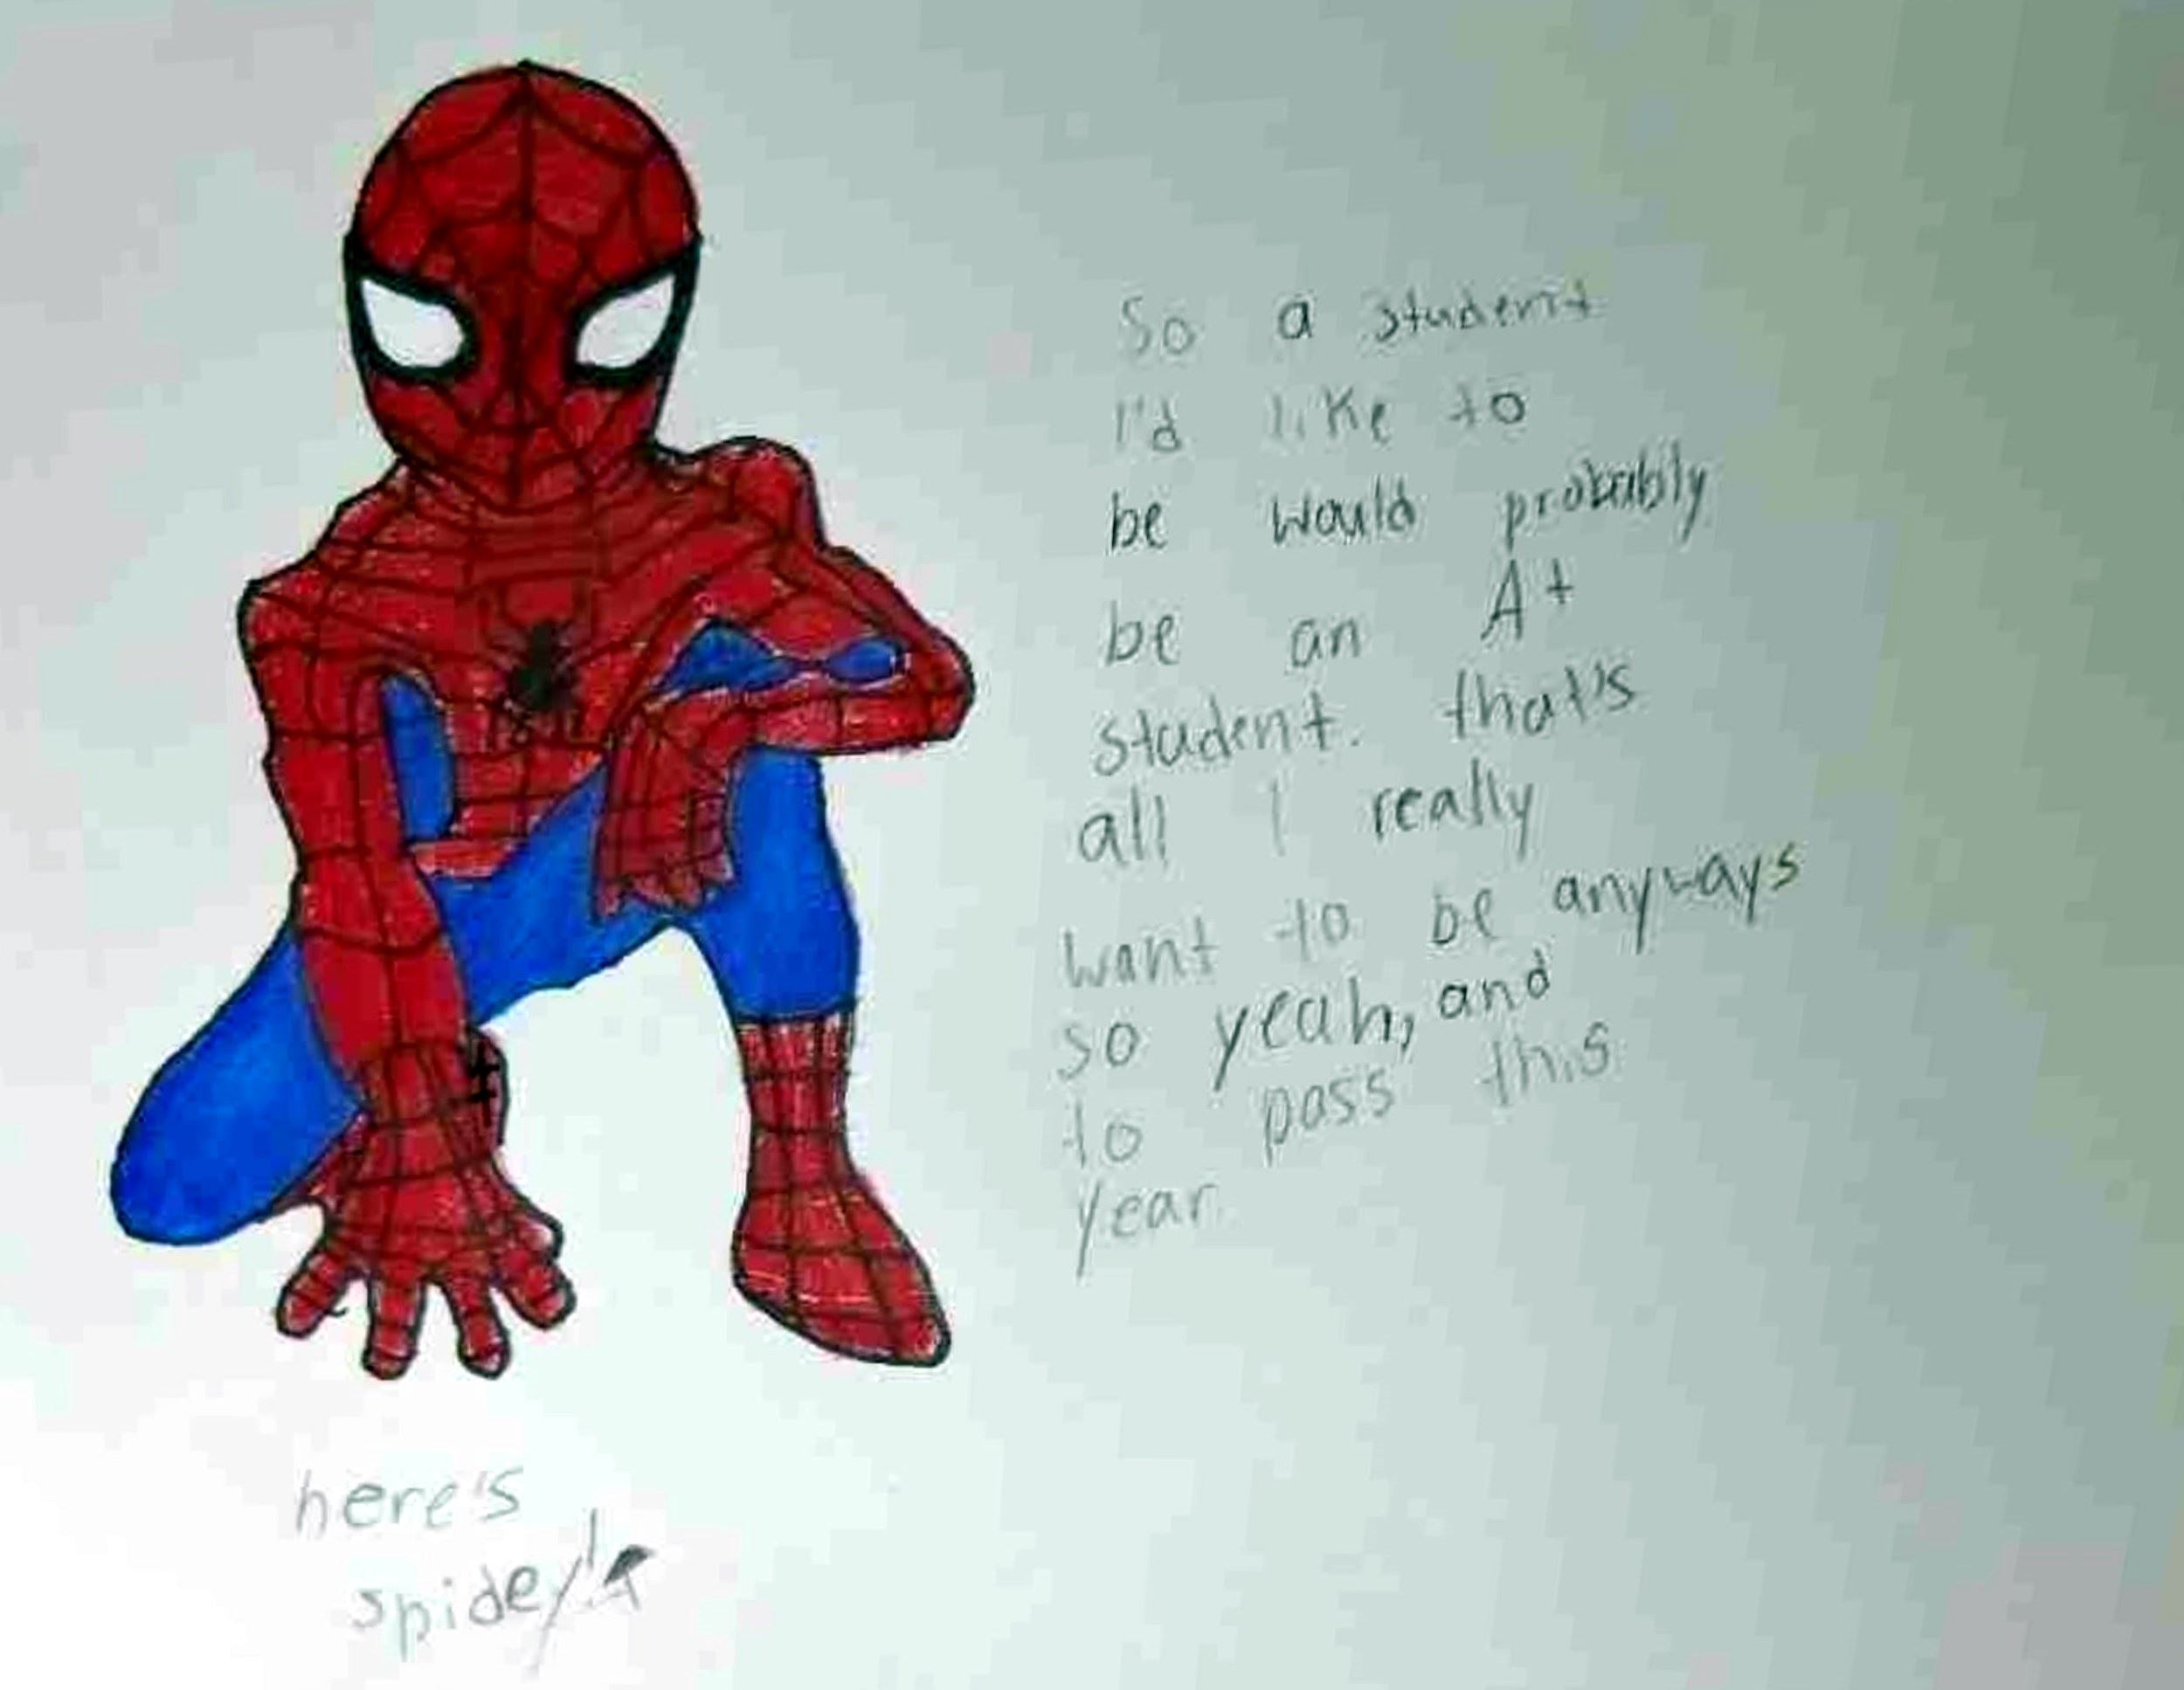 So a student
I'd like to
be would probably
be an A+
student. that's
all I really
want to be anyways
so yeah, and
to pass this
year.
here's
spidey!